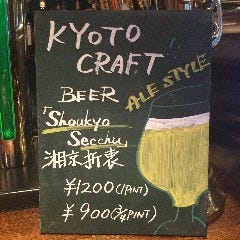 KYOTO
CRAFT
BEER
ALE STYLE
「Shoukyo
Secchu」
湘京折衷
¥1200(1PINT)
¥900(3/4PINT)